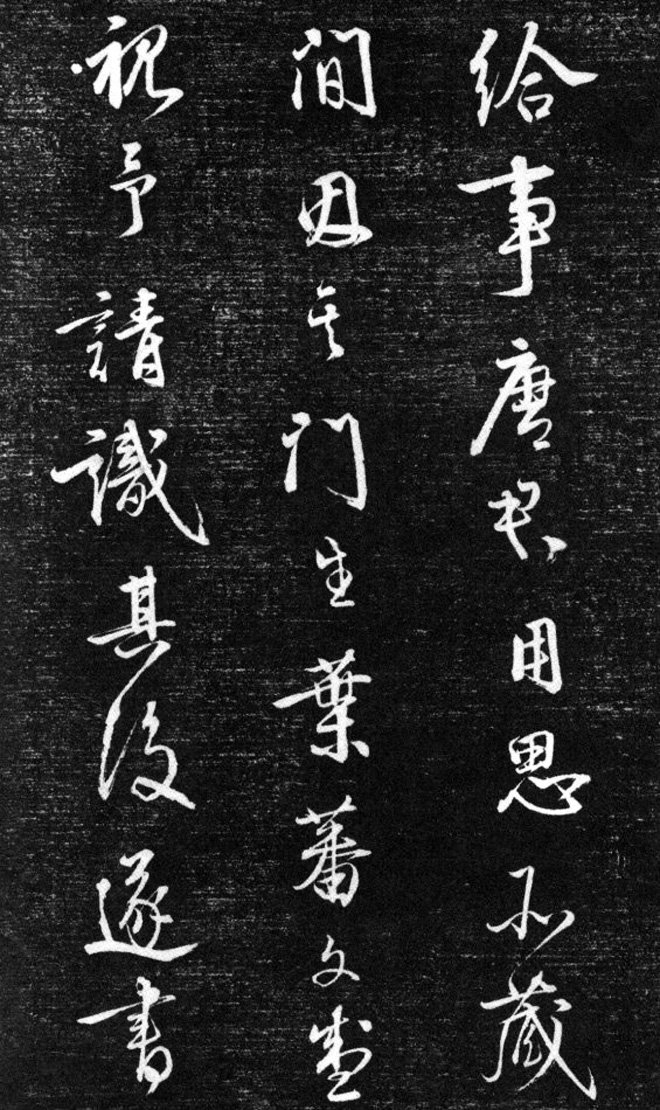 給事唐君用思所藏
間因其門生葉蕃文盛
視予請識其後遂書